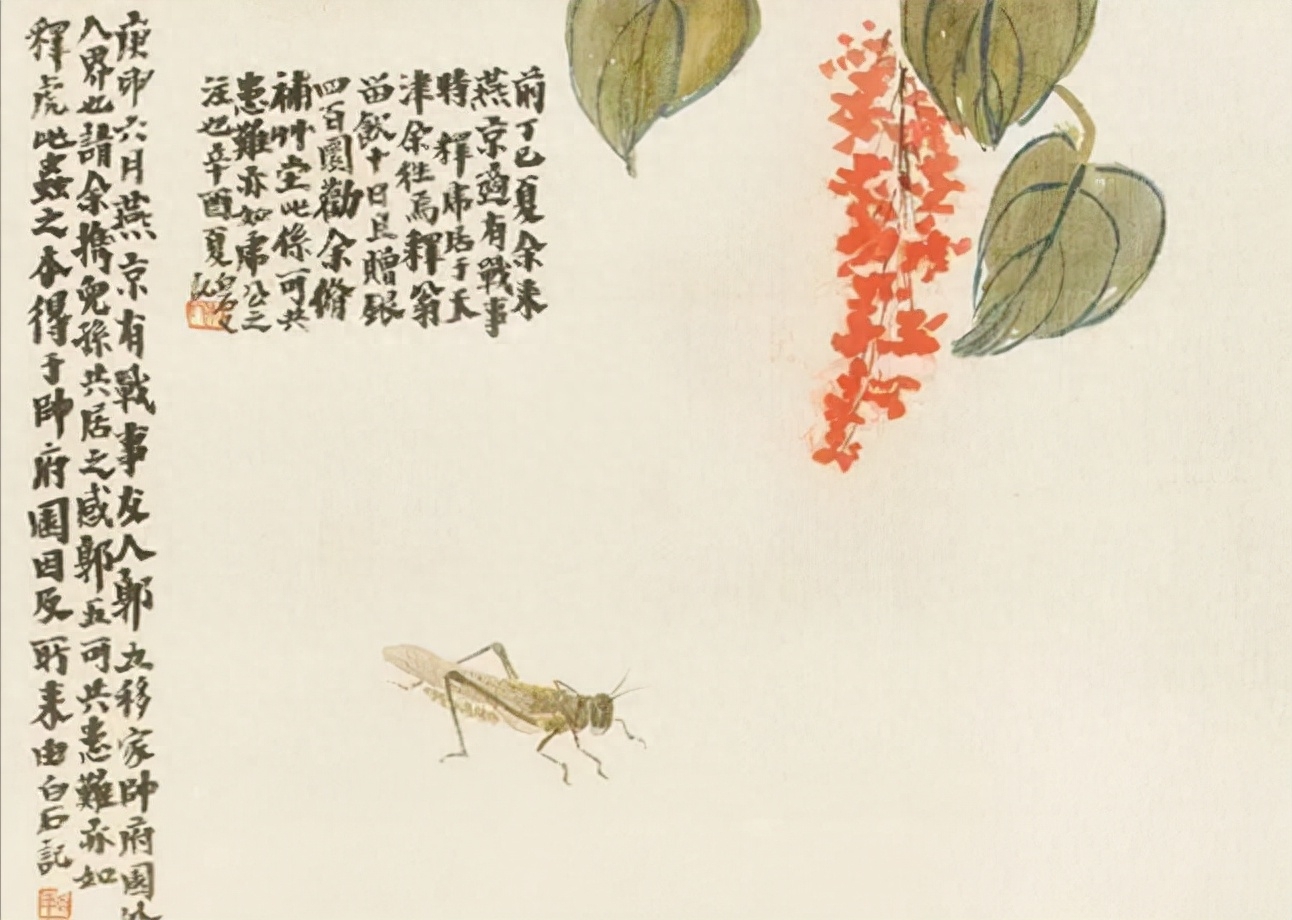 前丁巳夏余来
燕京適有戰事
時釋虎居于天
津余往焉釋翁
留飲十日且贈銀
四百圜勸余脩
補艸堂此係可共
患難亦如虎公之
注也辛酉夏白石又記
庚申六月燕京有戰事友人郭五移家帥府園外
人界也請余携兒孫共居之感郭五可共患難亦如
釋虎此蟲之本得于帥府園因及所来由白石記